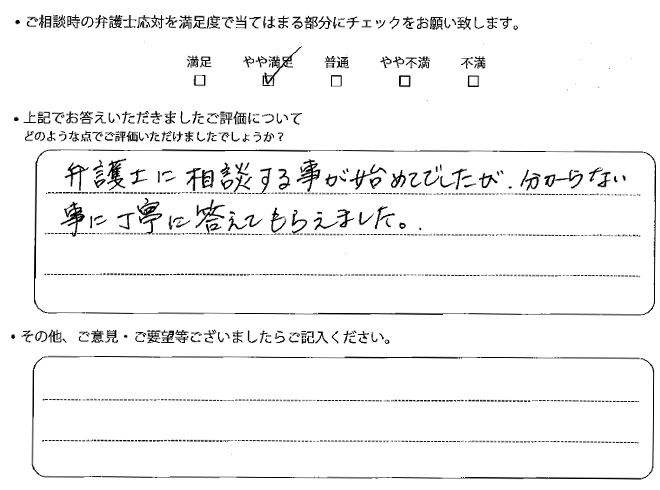 ・ご相談時の弁護士応対を満足度で当てはまる部分にチェックをお願い致します。
満足 やや満足 普通 やや不満 不満
□ ☑ □ □ □
・上記でお答えいただきましたご評価について
どのような点でご評価いただけましたでしょうか？
弁護士に相談する事が始めてでしたが、分からない
事に丁寧に答えてもらえました。
・その他、ご意見・ご要望等ございましたらご記入ください。